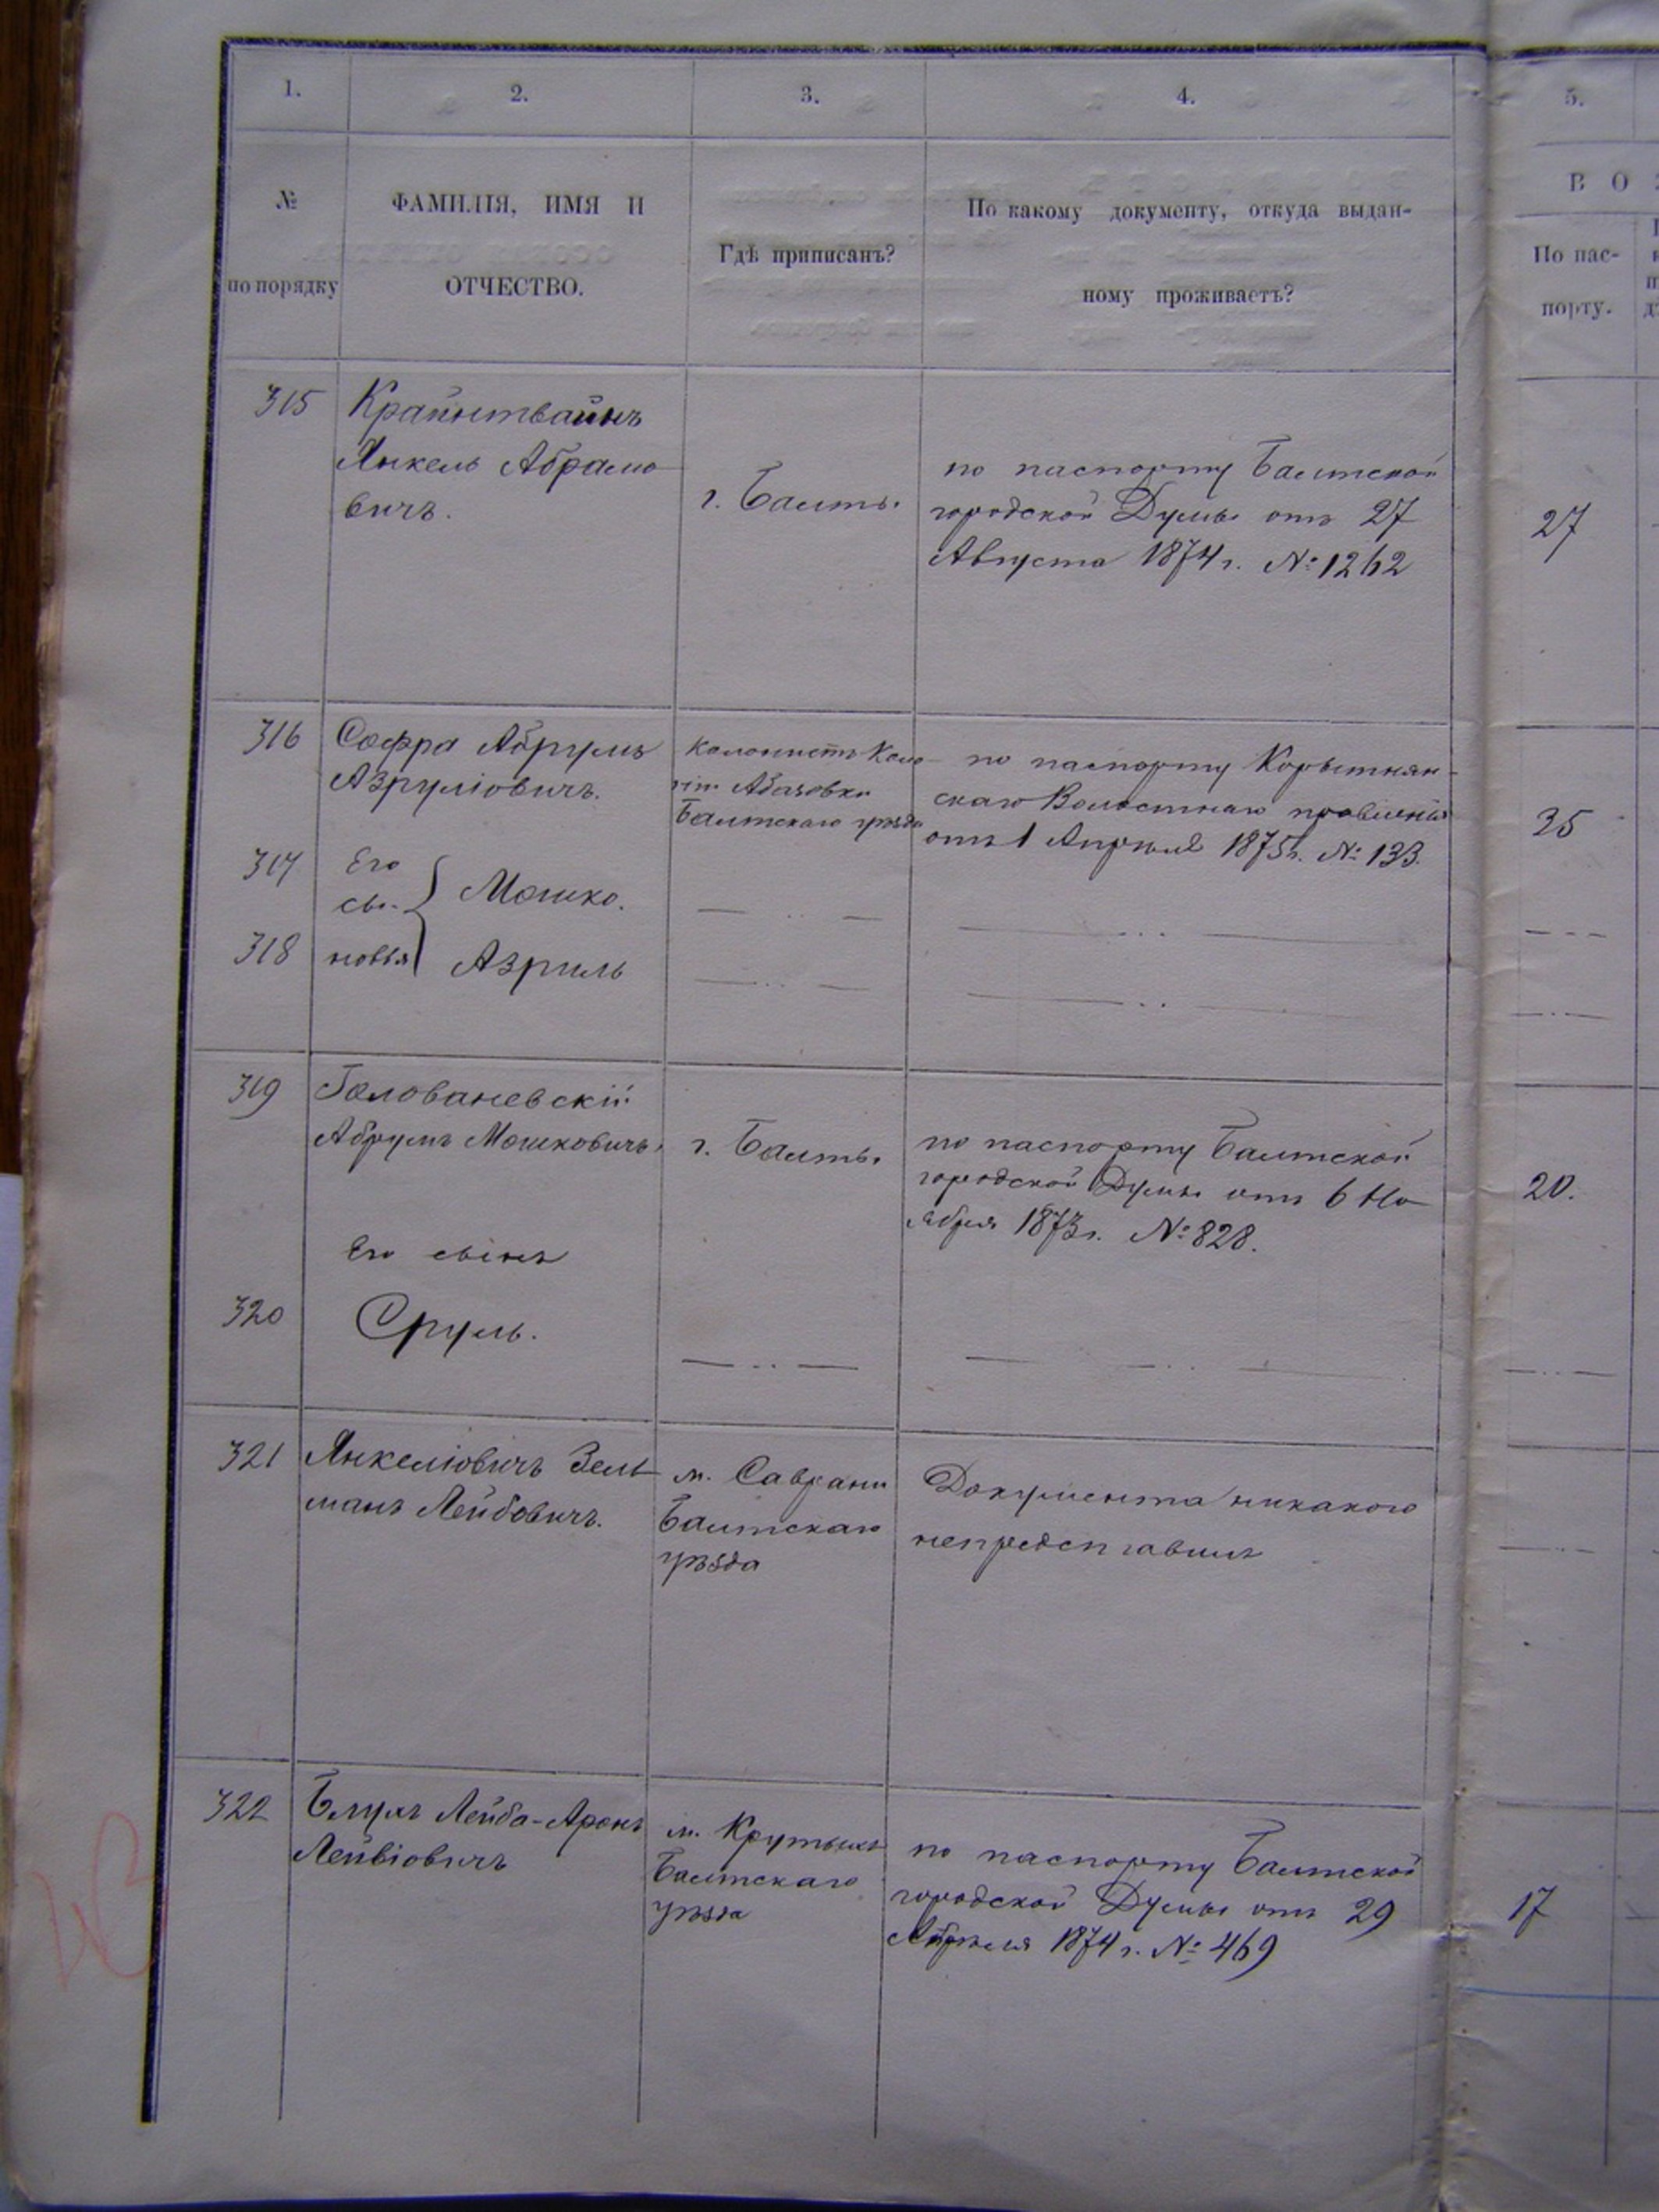 1.
2.
3.
4.
5.
№
по порядку
ФАМИЛІЯ, ИМЯ И
ОТЧЕСТВО.
Гдѣ приписанъ?
По какому документу, откуда выдан-
ному проживаетъ?
В О
По пас-
порту.
315
Крайнтвайнъ
Янкель Абрамо
вичъ.
г. Балты.
по паспорту Балтской
городской Думы отъ 27
Августа 1874 г. №1262
27
316
Софра Абрумъ
Азруліовичъ.
колонистъ Коло-
ніи Абазовки
Балтскаго уѣзда
по паспорту
скаго Волостнаго правленія
отъ 1 Апрѣля 1875г. № 133.
35
317
Его
сы-
Мошко.
318
новья
Азриль
319
Голованевскій
Абрумъ Мошковичъ.
г. Балты.
по паспорту Балтской
городской Думы отъ 6 Но
ября 1873г. №828.
20.
Его сынъ
320
Сруль.
321
Янкеліовичъ Зель
манъ Лейбовичъ.
м. Саврани
Балтскаго
уѣзда
Документа никакого
непредставилъ
322
Блумъ Лейба-Аронъ
Лейвіовичъ
м. Крутыхъ
Балтскаго
уѣзда
по паспорту Балтской
городской Думы отъ 29
Апрѣля 1874 г. № 469
17